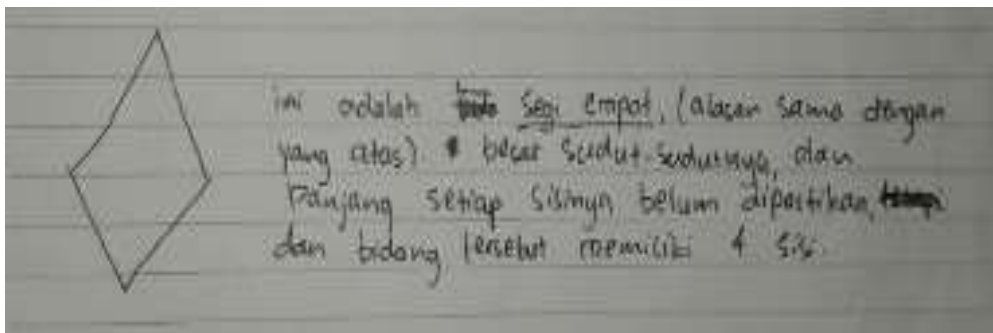 ini adalah segi empat, (alasan sama dengan
yang atas). besar sudut-sudutnya, dan
panjang setiap sisinya belum dipastikan,
dan bidang tersebut memiliki 4 sisi.